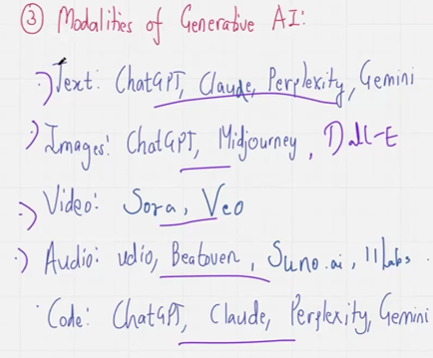 ③ Modalities of Generative AI:
Text: ChatGPT, Claude, Perplexity, Gemini
Images: ChatGPT, Midjourney, Dall-E
Video: Sora, Veo
Audio: udio, Beatoven, Suno.ai, 11Labs.
Code: ChatGPT, Claude, Perplexity, Gemini